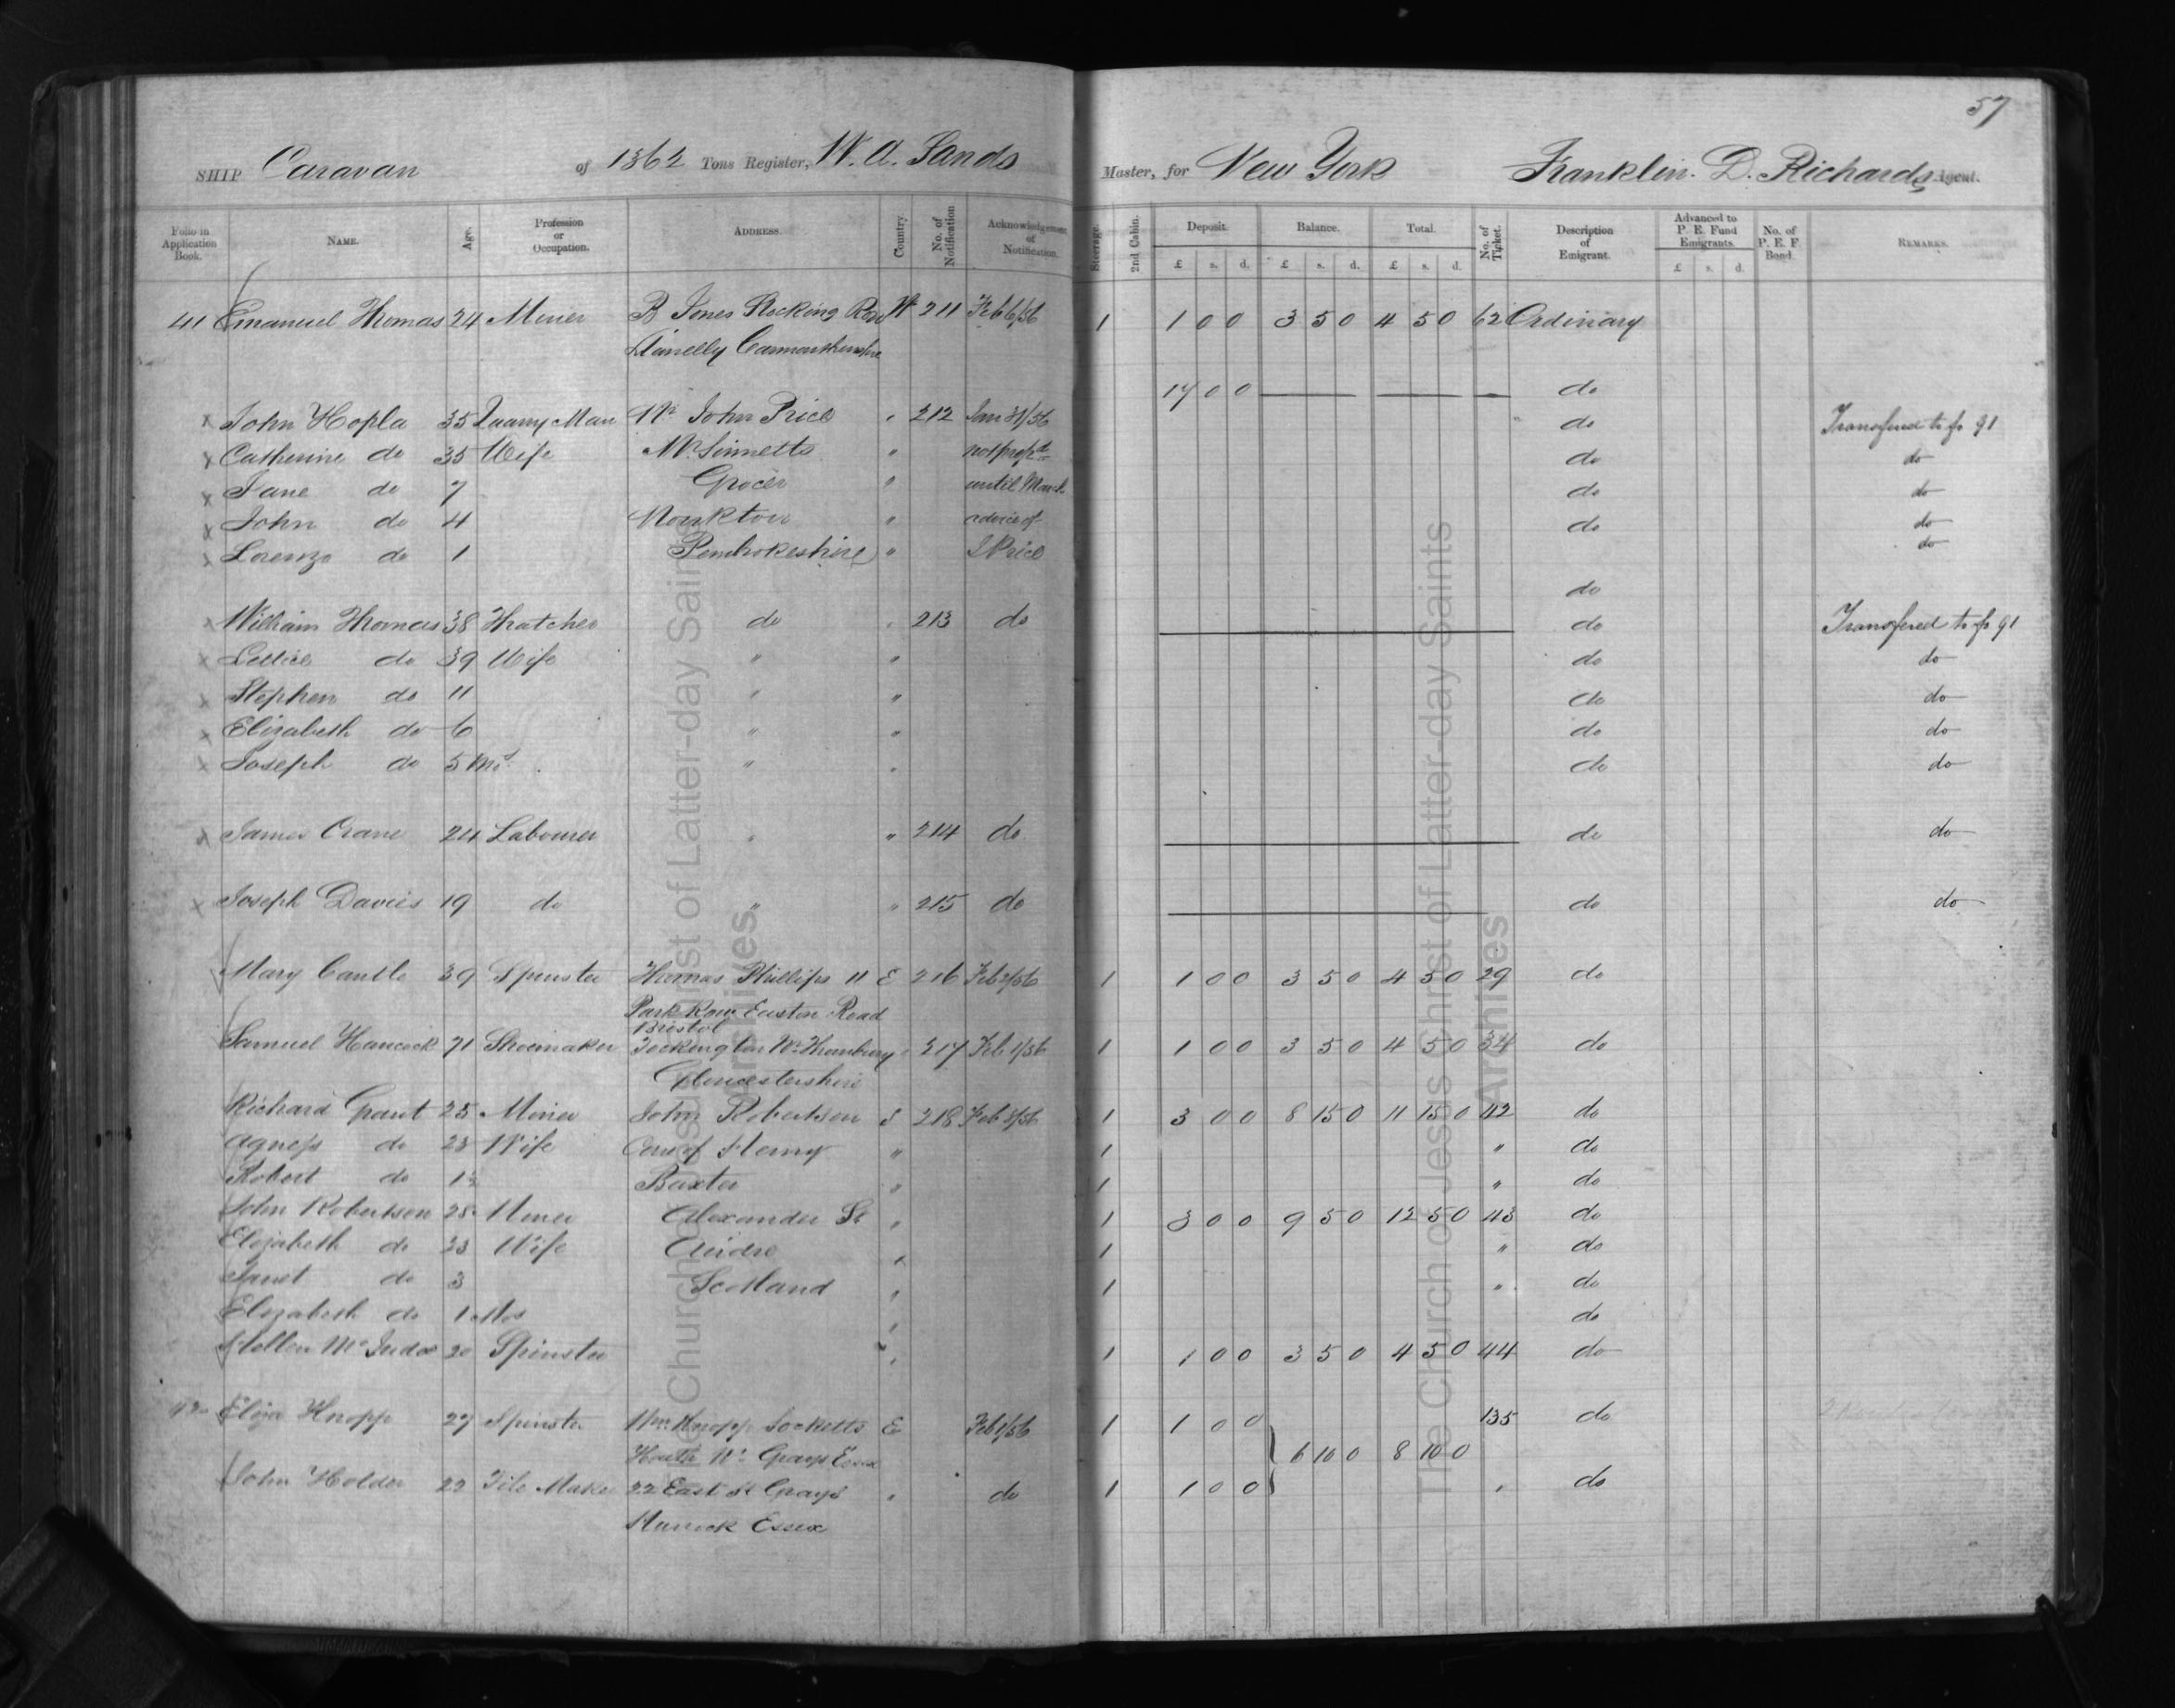 57
SHIP Caravan of 1362 Tons Register, W. A. Sands Master, for New York Franklin. D. Richards Agent.
Folio in Application Book. NAME. Age. Profession or Occupation. ADDRESS. Country No. of Notification Acknowledgement of Notification. Steerage. 2nd Cabin. Deposit. Balance. Total. No. of Ticket. Description of Emigrant. Advanced to P. E. Fund Emigrants. No. of P. E. F. Bond. REMARKS.
£ s. d. £ s. d. £ s. d. £ s. d.
41 Emanuel Thomas 24 Miner B Jones Stocking Row W 211 Feb 6/56 1 1 0 0 3 5 0 4 5 0 62 Ordinary
Llanelly Carmarthenshire
17 0 0 do
x John Hopla 35 Quarry Man Mr John Price " 212 Jan 31/56 do Transfered to fo 91
x Catherine do 35 Wife Mr Sinnetts " not prepd do do
x Jane do 7 Grocer " until March do do
x John do 4 Monkton " advice of do do
x Lorenzo do 1 Pembrokeshire " J Price do
do
x William Thomas 38 Thatcher do " 213 do do Transfered to fo 91
x Lettice do 39 Wife " " do do
x Stephen do 11 " " do do
x Elizabeth do 6 " " do do
x Joseph do 5 Ms. " " do do
x James Crane 24 Labourer " " 214 do do do
x Joseph Davies 19 do " " 215 do do do
Mary Cantle 39 Spinster Thomas Phillips 11 E 216 Feb 2/56 1 1 0 0 3 5 0 4 5 0 29 do
Park Row Easton Road
Bristol
Samuel Hancock 71 Shoemaker Tockington Nr Thornbury " 217 Feb 1/56 1 1 0 0 3 5 0 4 5 0 34 do
Gloucestershire
Richard Grant 25 Miner John Robertson S 218 Feb 2/56 1 3 0 0 8 15 0 11 15 0 42 do
Agness do 23 Wife Care of Henry " 1 " do
Robert do 1½ Baxter " 1 " do
John Robertson 28 Miner Alexander St " 1 3 0 0 9 5 0 12 5 0 43 do
Elizabeth do 23 Wife Airdre " 1 " do
Janet do 3 Scotland " 1 " do
Elizabeth do 1 Mos " do
Hellen 20 Spinster " 1 1 0 0 3 5 0 4 5 0 44 do
42 Eliza Knopp 27 Spinster Wm Knopp Socketts E Feb 1/56 1 1 0 0 135 do
Heath Nr Grays Essex 6 10 0 8 10 0
John Holder 22 Tile Maker 22 East St Grays " do 1 1 0 0 " do
Thurrock Essex
The Church of Jesus Christ of Latter-day Saints
Archives
The Church of Jesus Christ of Latter-day Saints
Archives